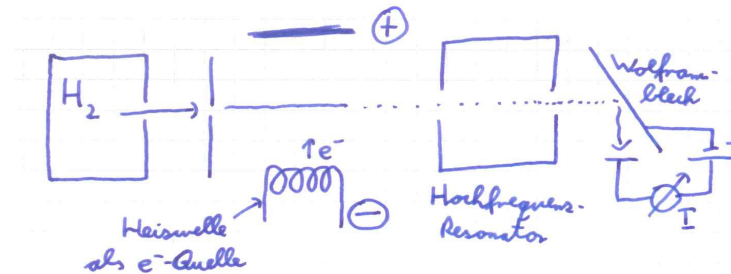 +
H₂
Wolfram-
blech
↑e⁻
−
Heiswelle
als e⁻-Quelle
Hochfrequenz-
Resonator
I